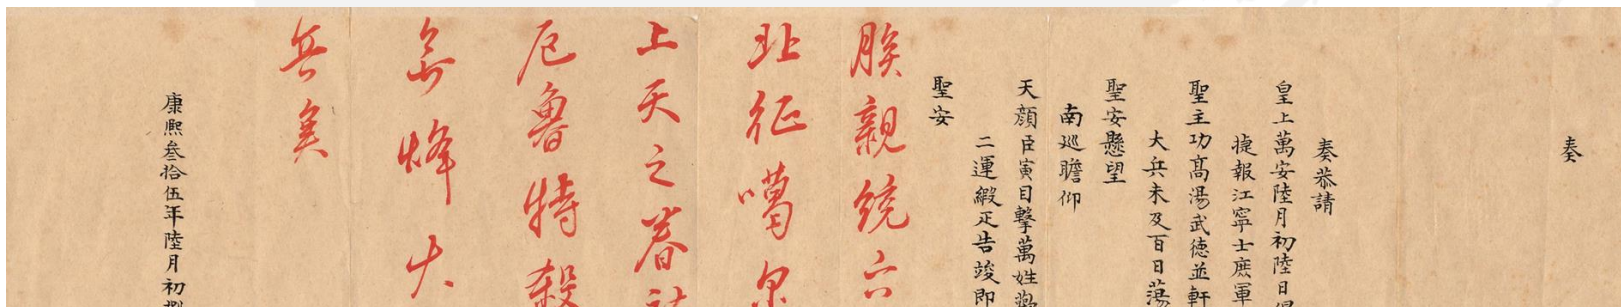 奏
奏恭請
皇上萬安陸月初陸日
捷報江寧士庶軍
聖主功高湯武德並軒
大兵未及百日蕩
聖安懸望
南巡瞻仰
天顏臣寅目擊萬姓
二運緞疋告竣即
聖安
朕親統六
北征噶尔
上天之眷
厄魯特殺
烽火
兵矣
康熙叁拾伍年陸月初捌